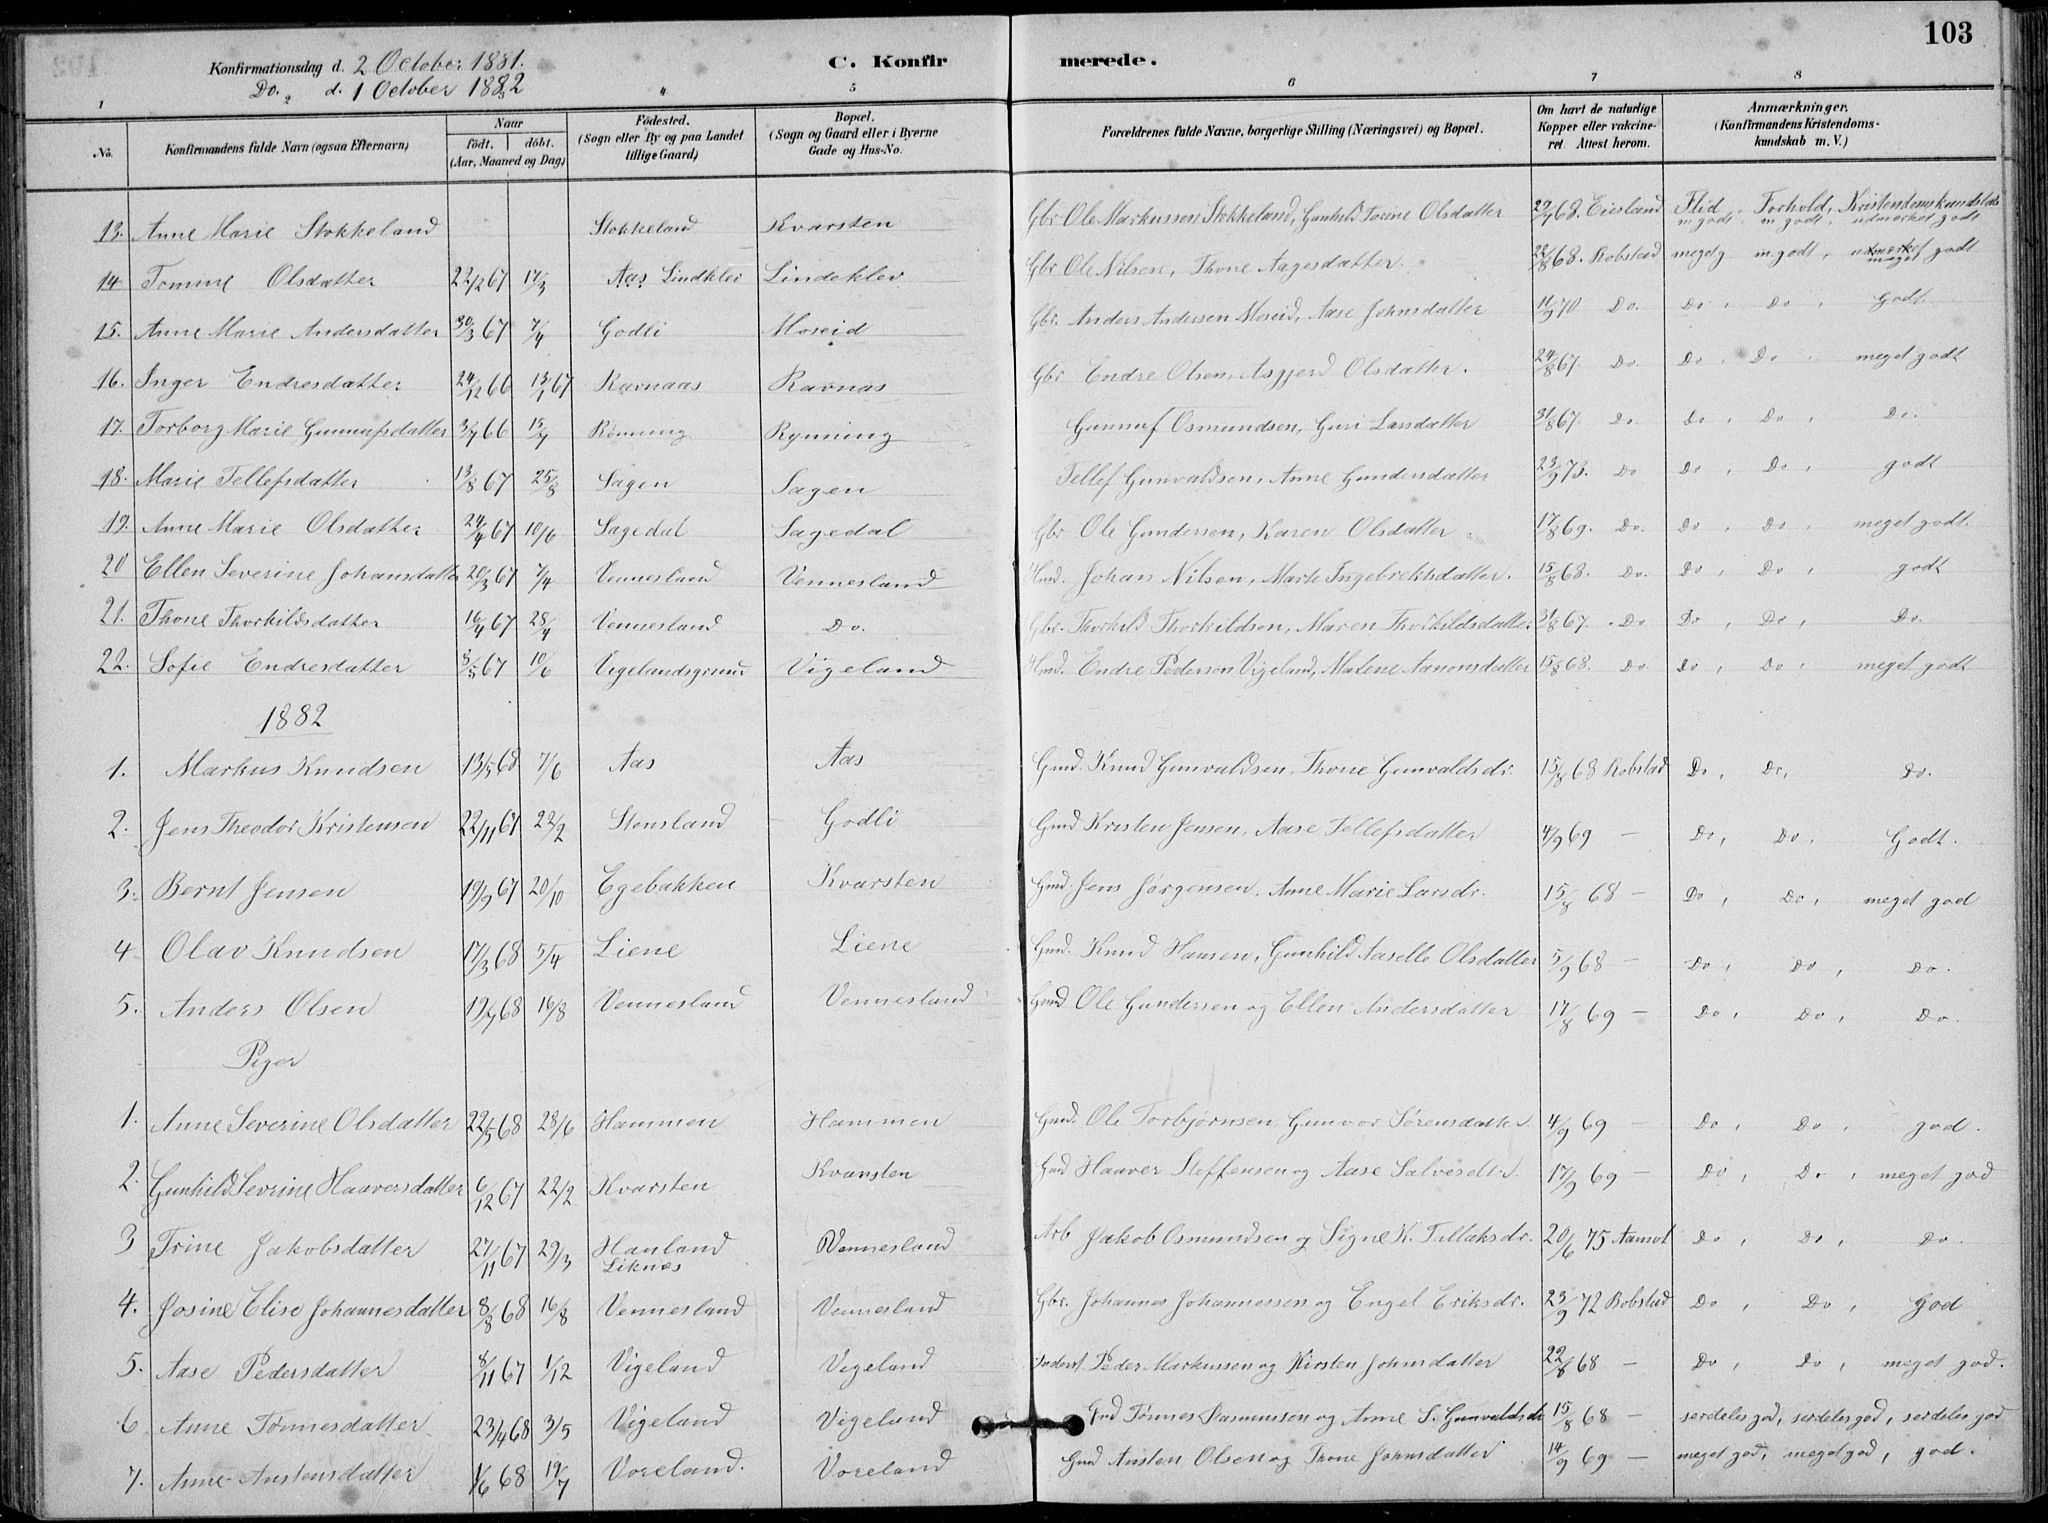 103
Konfirmationsdag d. 2 October 1881. C. Konfirmerede.
Do. d. 1 October 1882
1 4 5 6 7 8
No. Konfirmandens fulde Navn (ogsaa Efternavn) Naar født. døbt. (Aar, Maaned og Dag) Fødested. (Sogn eller By og paa Landet tillige Gaard) Bopæl. (Sogn og Gaard eller i Byerne Gade og Hus-No. Forældrenes fulde Navne, borgerlige Stilling (Næringsvei) og Bopæl. Om havt de naturlige Kopper eller vakcineret. Attest herom. Anmærkninger. (Konfirmandens Kristendomskundskab m. V.)
13. Anne Marie Stokkeland Stokkeland Kvarsten Gbr. Ole Markussen Stokkeland, Gunhild Torine Olsdatter 68. Eiesland Flid m godt, Forhold, m godt, Kristendomskundskab udmerket godt
14 Tomine Olsdatter 22/2 67 17/3 Aas Lindklev Lindeklev Gbr. Ole Nilsen, Thone Aagesdatter. 22/8 68. Robstad meget g m godt, meget godt
15. Anne Marie Andersdatter 30/3 67 7/4 Godli Moseid Gbr. Anders Andersen Moseid, Aase Johnsdatter 11/9 70 Do. Do , Do , Godt
16. Inger Endresdatter 24/12 66 13/1 67 Ravnaas Ravnas Gbr Endre Olsen, Asgjerd Olsdatter. 24/8 67. Do. Do , Do , meget godt
17. Torborg Marie Gunnufsdatter 3/7 66 15/7 Rømning Rymning Gunnuf Osmundsen, Guri Larsdatter 31/8 67. Do. Do , Do , Do.
18. Marie Tellefsdatter 13/8 67 25/8 Sagen Sagen Tellef Gunvaldsen, Anne Gundersdatter 23/9 73. Do Do , Do , godt
19. Anne Marie Olsdatter 24/4 67 10/6 Sagedal Sagedal Gbr Ole Gundersen, Karen Olsdatter 17/8 69. Do. Do , Do , meget godt.
20 Ellen Severine Johansdatter 20/3 67 7/4 Vennesland Vennesland Hmd. Johan Nilsen, Marte Ingebrektsdatter. 15/8 68. Do. Do , Do , godt
21. Thone Thorkildsdatter 16/4 67 28/4 Vennesland Do. Gbr. Thorkild Thorkildsen, Maren Thorkildsdatter 31/8 67. Do Do , Do , Do.
22. Sofie Endresdatter 3/5 67 10/6 Vigelandsgrund Vigeland Hmd. Endre Pedersen Vigeland, Malene Aanonsdatter 15/8 68. Do. Do , Do , meget godt
1882
1. Markus Knudsen 13/5 68 7/6 Aas Aas Gmd. Knud Gunvaldsen, Thone Gunvaldsdr. 15/8 68 Robstad Do , Do, Do.
2. Jens Theodor Kristensen 22/11 67 22/2 Stensland Godli Gmd Kristen Jensen, Aase Tellefsdatter 4/9 69 — Do , Do , Godt.
3. Bernt Jensen 19/9 67 20/10 Egebakken Kvarsten Gmd. Jens Jørgensen, Anne Marie Larsdr. 15/8 68 — Do , Do , meget god
4 Olav Knudsen 17/3 68 5/4 Liene Liene Gmd. Knud Hansen, Gunhild Aaselle Olsdatter 5/9 68 — Do , Do , Do.
5. Anders Olsen 19/7 68 16/8 Vennesland Vennesland Gmd Ole Gundersen og Ellen Andersdatter 17/8 69 — Do , Do , Do.
Piger
1. Anne Severine Olsdatter 22/5 68 28/6 Hammen Hammen Gmd. Ole Torbjørnsen, Gunvor Sørensdatter 4/9 69 — Do , Do , god.
2. Gunhild Sevrine Haaversdatter 6/12 67 22/2 Kvarsten Kvansten Gmd Haaver Steffensen og Aase Salvesdtr. 17/9 69 — Do , Do , meget god
3 Trine Jakobsdatter 27/11 67 29/3 Hauland Liknæs Vennesland Arb Jakob Osmundsen og Signe K. Tillaksdr. 20/6 75 Aamot Do , Do , Do.
4. Josine Elise Johannesdatter 8/8 68 16/8 Vennesland Vennesland Gbr. Johannes Johannessen og Engel Eriksdr. 23/9 72 Robstad Do , Do , God
5. Aase Pedersdatter 8/11 67 1/12 Vigeland Vigeland Inderst Peder Markussen og Kirsten Johnsdatter 22/8 68 — Do , Do , meget god.
6 Anne Tønnesdatter 23/4 68 3/5 Vigeland Vigeland Gmd Tønnes Rasmussen og Anne S. Gunvaldsdr 15/8 68 — særdeles god, særdeles god, særdeles god
7. Anne Austensdatter 1/6 68 19/7 Voreland. Voreland Gmd Austen Olsen og Thone Johnsdatter 14/9 69 — meget god, meget god, god.